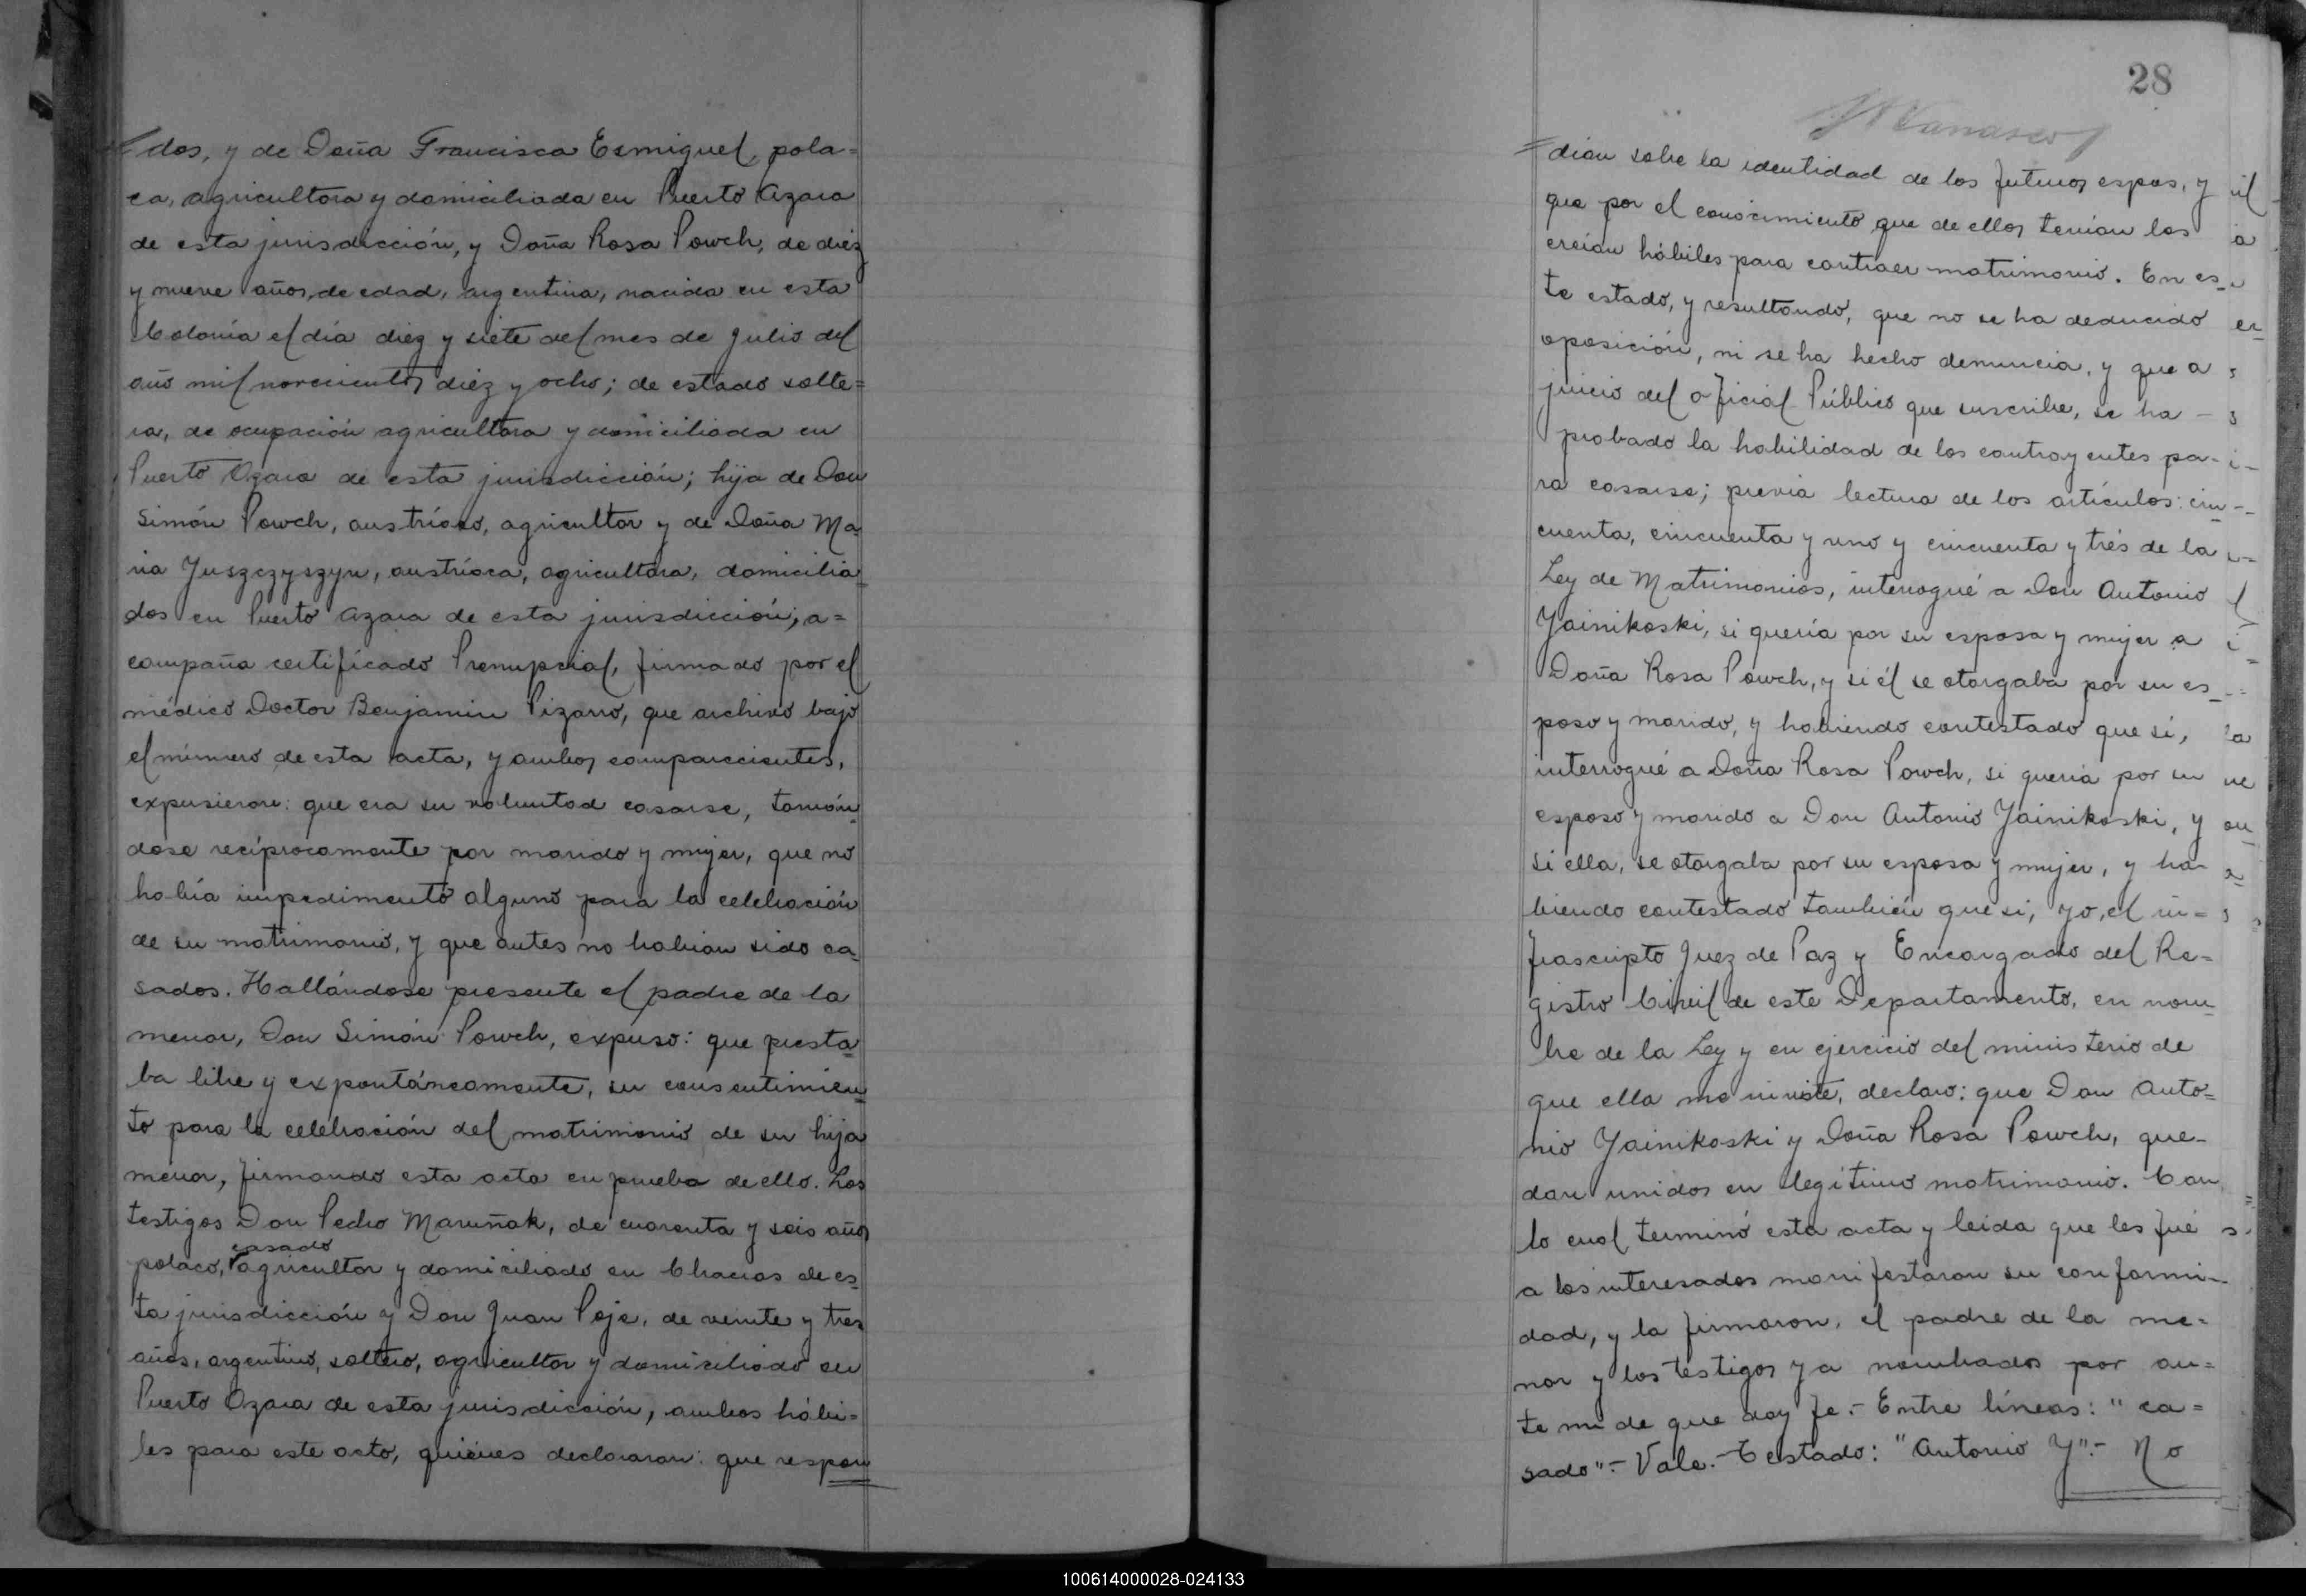 dos, y de Doña Francisca Esmiguel, pola=
ca, agricultora y domiciliada en Puerto Azara
de esta jurisdicción, y Doña Rosa Powch, de diez
y nueve años, de edad, argentina, nacida en esta
Colonia el día diez y siete del mes de Julio del
año mil novecientos diez y ocho; de estado solte=
ra, de ocupación agricultora y domiciliada en
Puerto Azara de esta jurisdicción; hija de Don
Simón Powch, austríaco, agricultor y de Doña Ma=
ria Juszczyszyn, austríaca, agricultora, domicilia=
dos en Puerto Azara de esta jurisdicción; a=
compaña certificado Prenupcial, firmado por el
médico Doctor Benjamin Pizarro, que archivo bajo
el número de esta acta, y ambos comparecientes,
expusieron: que era su voluntad casarse, tomán=
dose recíprocamente por marido y mujer, que no
había impedimento alguno para la celebración
de su matrimonio, y que antes no habían sido ca=
sados. Hallándose presente el padre de la
menor, Don Simón Powch, expuso: que presta=
ba libre y expontáneamente, su consentimien=
to para la celebración del matrimonio de su hija
menor, firmando esta acta en prueba de ello. Los
testigos Don Pedro Maruñak, de cuarenta y seis años
casado
polaco, agricultor y domiciliado en Chacras de es=
ta jurisdicción y Don Juan Peje, de veinte y tres
años, argentino, soltero, agricultor y domiciliado en
Puerto Azara de esta jurisdicción, ambos hábi=
les para este acto, quienes declararon: que respon
28
=dian sobre la identidad de los futuros espos, y
que por el conocimiento que de ellos tenían los
creían hábiles para contraer matrimonio. En es=
te estado, y resultando, que no se ha deducido
oposición, ni se ha hecho denuncia, y que a
juicio del oficial Público que suscribe, se ha
probado la habilidad de los contrayentes pa-
ra casarse; previa lectura de los artículos: cin=
cuenta, cincuenta y uno y cincuenta y trés de la
Ley de Matrimonios, interrogué a Don Antonio
Yainikoski, si quería por su esposa y mujer a
Doña Rosa Powch, y si él se otorgaba por su es=
poso y marido, y habiendo contestado que si,
interrogué a Doña Rosa Powch, si quería por su
esposo y marido a Don Antonio Yainikoski, y
si ella, se otorgaba por su esposa y mujer, y ha-
biendo contestado también que si, yo, el in=
frascripto Juez de Paz y Encargado del Re=
gistro Civil de este Departamento, en nom=
bre de la Ley y en ejercicio del ministerio de
que ella me inviste, declaro: que Don Anto=
nio Yainikoski y Doña Rosa Powch, que-
dan unidos en legítimo matrimonio. Con
lo cual terminó esta acta y leida que les fué
a los interesados manifestaron su conformi-
dad, y la firmaron, el padre de la me=
nor y los testigos ya nombrados por an=
te mi de que doy fe.- Entre líneas: "ca=
sado".- Vale.- Testado: "Antonio Y".- No
100614000028-024133